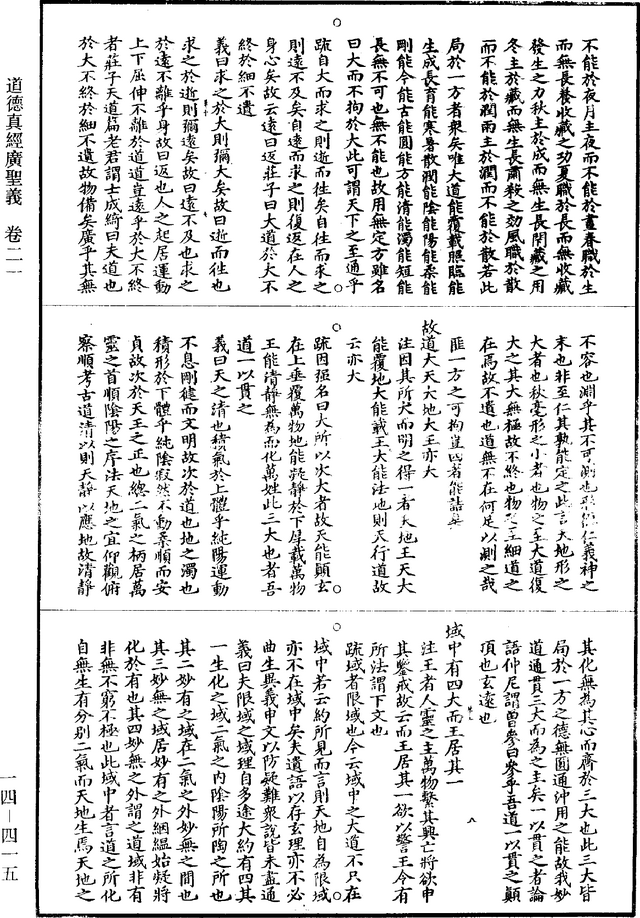 不能於夜月主夜而不能於晝春職於生
而無長養收藏之功夏職於長而無收藏
發生之力秋主於成而無生長閉藏之用
冬主於藏而無生長肅殺之効風職於散
而不能於潤雨主於潤而不能於散若此
局於一方者衆矣唯大道能覆載照臨能
生成長育能寒暑散潤能陰能陽能柔能
剛能今能古能圓能方能清能濁能短能
長無不可也無不能也故用無定方雖名
曰大而不拘於大此可謂天下之至通乎
疏自大而求之則逝而往矣自往而求之
則遠不及矣自遠而求之則復返在人之
身心矣故云遠曰返莊子曰大道於大不
終於細不遺
義曰求之於大則彌大矣故曰逝而往也
求之於逝則彌遠矣故曰遠不及也求之
於遠不離乎身故曰返也人之起居運動
上下屈伸不離於道道豈遠乎於大不終
者莊子天道篇老君謂士成綺曰夫道也
於大不終於細不遺故物備矣廣乎其無
不容也淵乎其不可測也形德仁義神之
末也非至仁其孰能定之此言天地形之
大者也秋毫形之小者也物之至大道復
大之其大無極故不終也物之至細道之
在焉故不遺也道無不在何足以測之哉
匪一方之可拘豈四者能詰矣
故道大天大地大王亦大
注因其所大而明之得一者天地王天大
能覆地大能載王大能法地則天行道故
云亦大
疏因强名曰大所以次大者故天能顛玄
在上垂覆萬物地能凝靜於下厚載萬物
王能清靜無為而化萬姓此三大也者吾
道一以貫之
義曰天之清也積氣於上體乎純陽運動
不息剛健而文明故次於道也地之濁也
積形於下體乎純陰寂然不動柔順而安
貞故次於天王之正也總二氣之柄居萬
靈之首順陰陽之序法天地之宜仰觀俯
察順考古道清以則天靜以應地故清靜
其化無為其心而齊於三大也此三大皆
局於一方之德無圓通沖用之能故我妙
道通貫三大而為之主矣一以貫之者論
語仲尼謂曾參曰參乎吾道一以貫之顛
頂也玄遠也
域中有四大而王居其一
注王者人靈之主萬物繫其興亡將欲申
其鑒戒故云而王居其一欲以警王令有
所法謂下文也
疏域者限域也今云域中之大道不只在
域中若云約所見而言則天地自為限域
亦不在域中矣夫遺語以存玄理亦不必
曲生異義申文以防疑難衆說皆未盡通
義曰夫限域之域理自多途大約有四其
一生化之域二氣之內陰陽所陶之所也
其二妙有之域在二氣之外妙無之間也
其三妙無之域居妙有之外絪縕始凝將
化於有也其四妙無之外謂之道域非有
非無不窮不極也此域中者言道之所化
自無生有分別二氣而天地生焉天地之
道德真經廣聖義　卷二一
一四—四一五